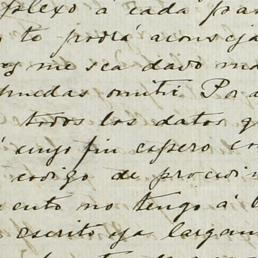 plexo á cada pas
te podia aconseja
me sea dado ma
puedas omitir Por
todos los datos q
cuyo fin espero co
codigo de procedim
ento no tengo á
escrito ya largam